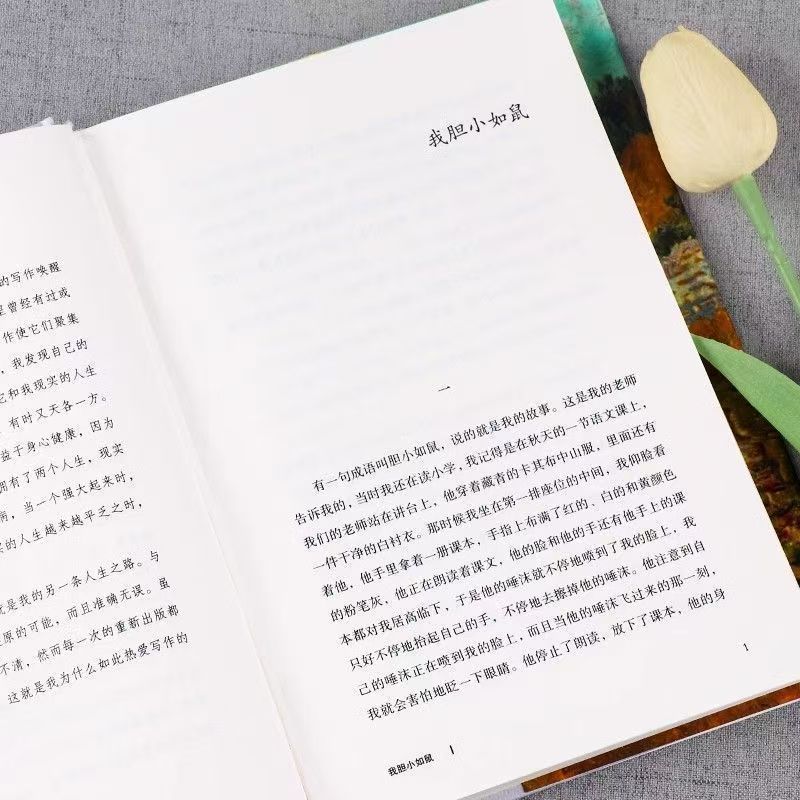 的写作唤醒
是曾经有过或
作使它们聚集
，我发现自己的
它和我现实的人生
，有时又天各一方。
益于身心健康，因为
拥有了两个人生，现实
病，当一个强大起来时，
实的人生越来越平乏之时，
就是我的另一条人生之路。与
还原的可能，而且准确无误。虽
不清，然而每一次的重新出版都
这就是我为什么如此热爱写作的
我胆小如鼠
一
有一句成语叫胆小如鼠，说的就是我的故事。这是我的老师
告诉我的，当时我还在读小学，我记得是在秋天的一节语文课上，
我们的老师站在讲台上，他穿着藏青的卡其布中山服，里面还有
一件干净的白衬衣。那时候我坐在第一排座位的中间，我仰脸看
着他，他手里拿着一册课本，手指上布满了红的、白的和黄颜色
的粉笔灰，他正在朗读着课文，他的脸和他的手还有他手上的课
本都对我居高临下，于是他的唾沫就不停地喷到了我的脸上，我
只好不停地抬起自己的手，不停地去擦掉他的唾沫。他注意到自
己的唾沫正在喷到我的脸上，而且当他的唾沫飞过来的那一刻，
我就会害怕地眨一下眼睛。他停止了朗读，放下了课本，他的身
1
我胆小如鼠